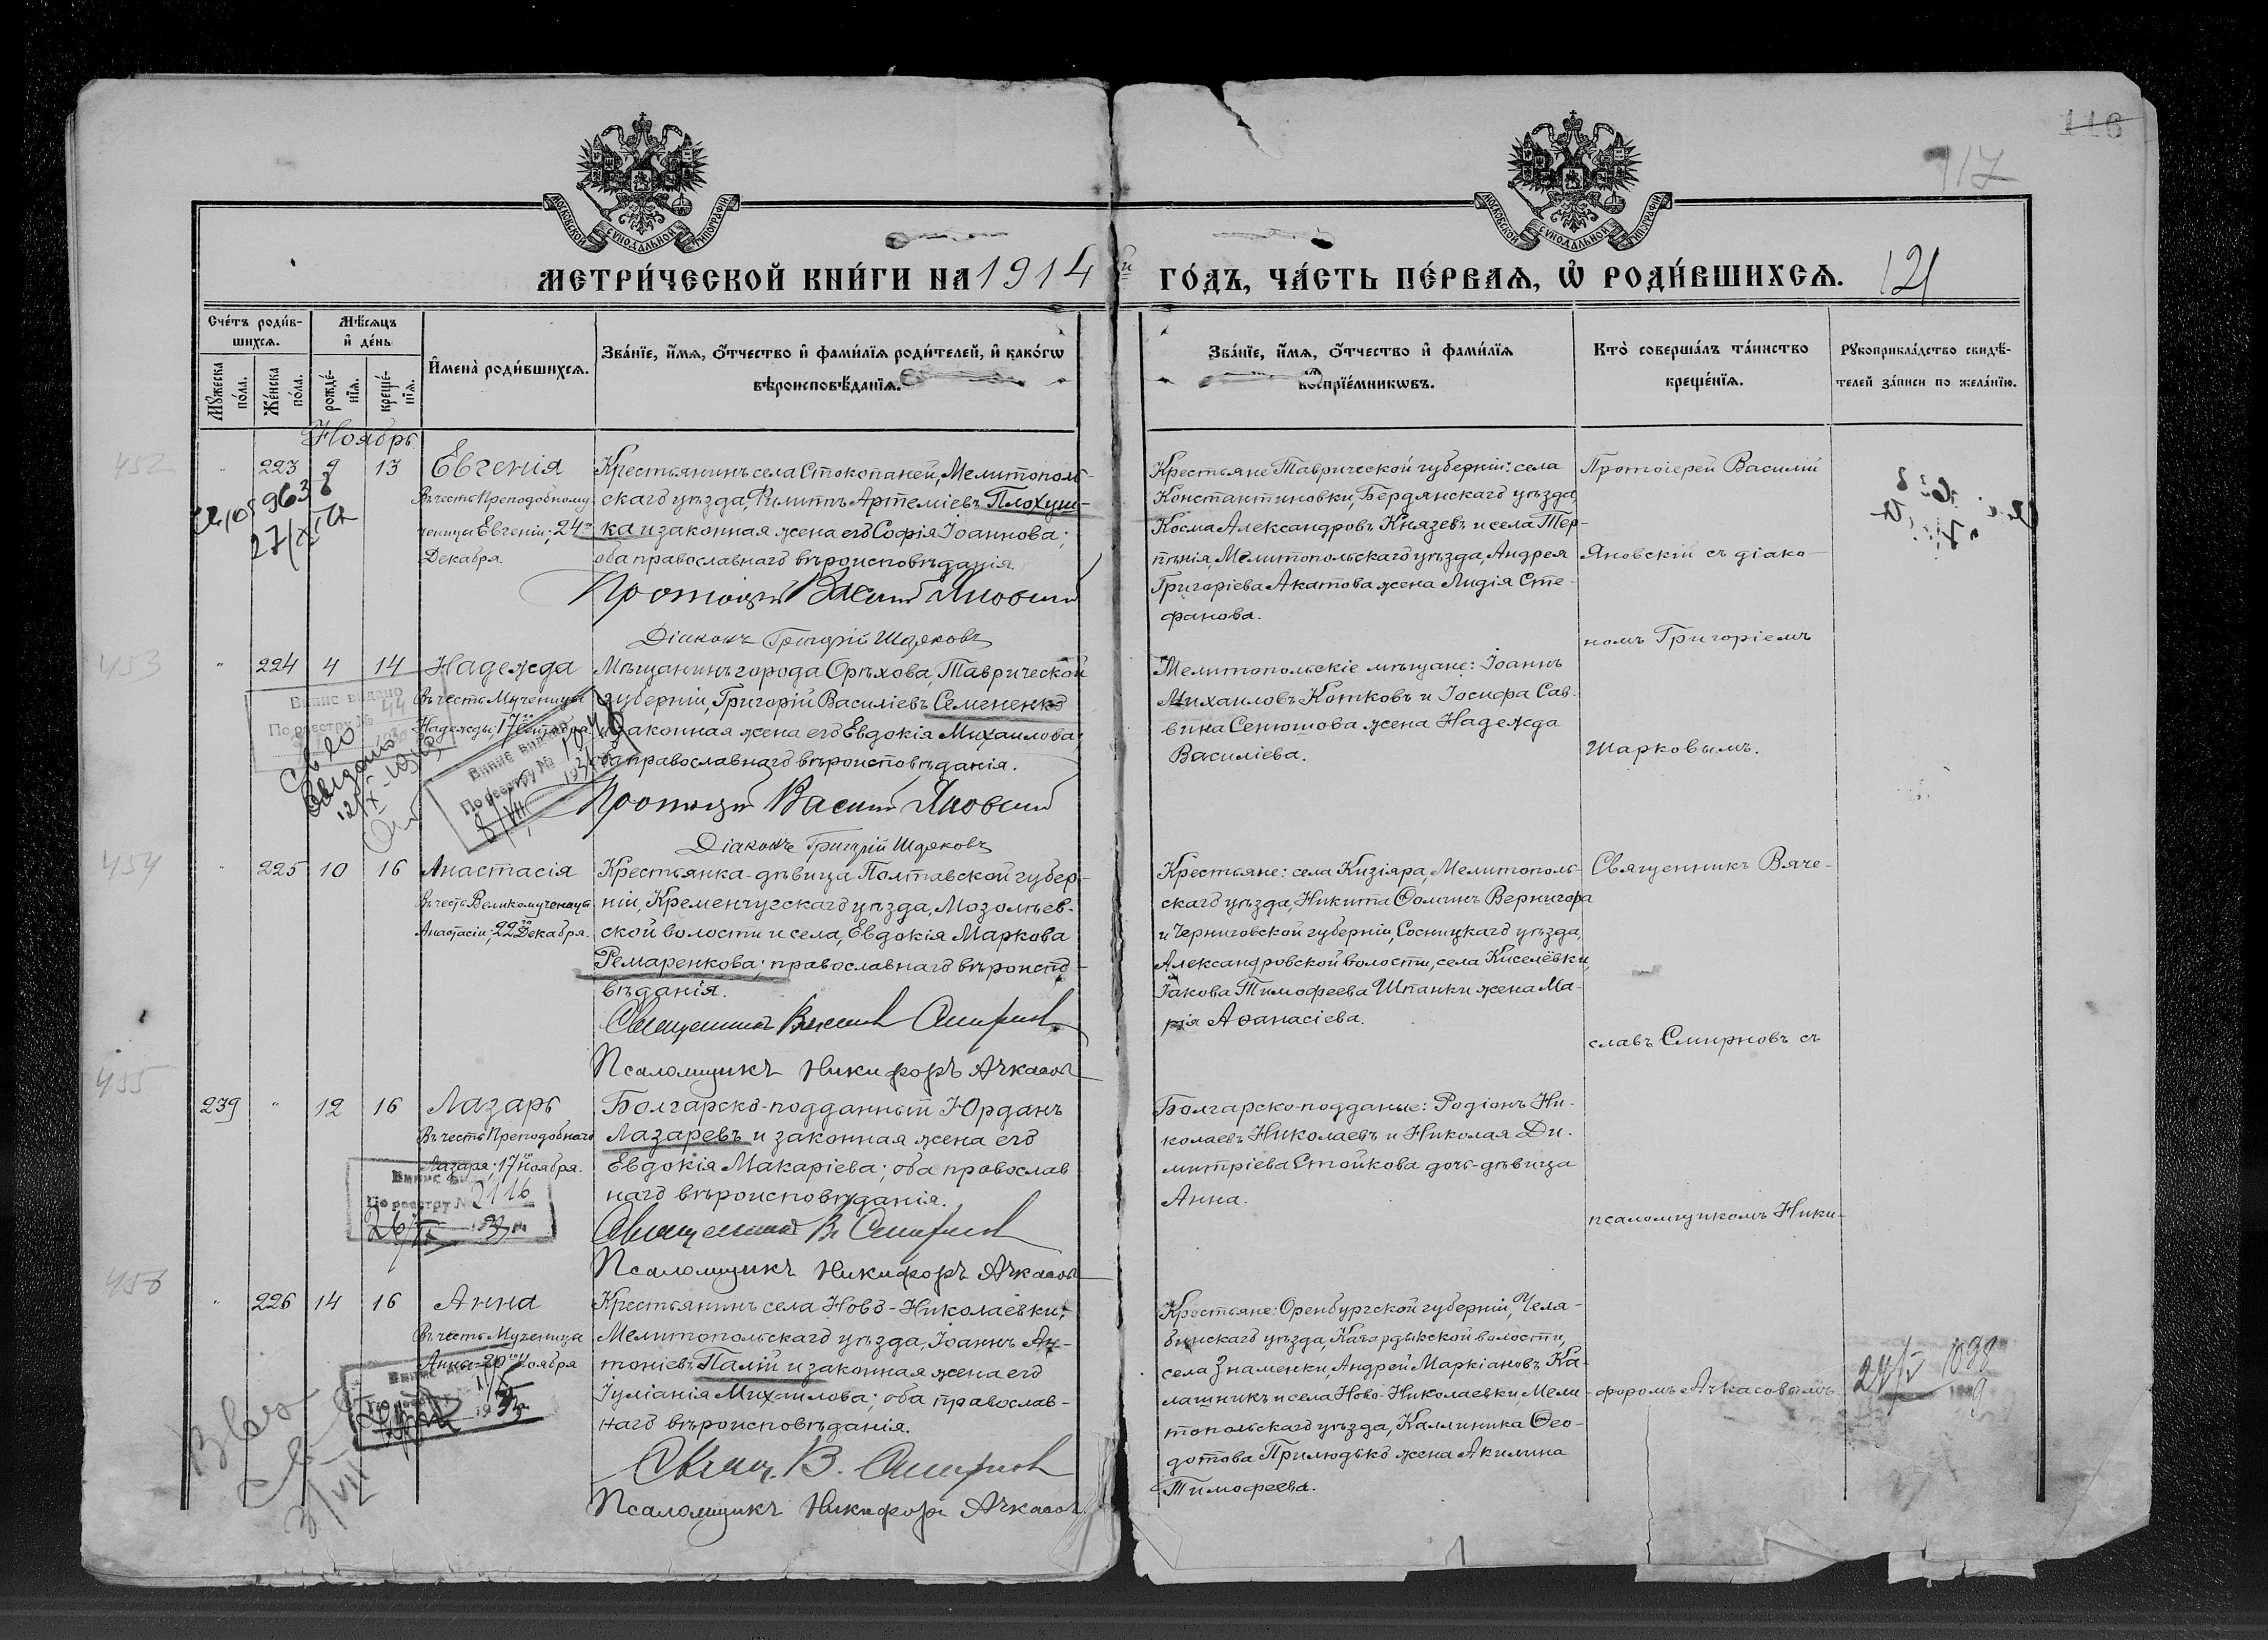 116
117
МОСКОВСКОЙ СѴНОДАЛЬНОЙ ТИПОГРАФІИ
МОСКОВСКОЙ СѴНОДАЛЬНОЙ ТИПОГРАФІИ
МЕТРИ́ЧЕСКОЙ КНИ́ГИ НА 1914 й ГО́ДЪ, ЧА́СТЬ ПЕ́РВАѦ, Ѡ҆ РОДИ́ВШИХСѦ.
121
Сче́тъ роди́в-
шихсѧ.
Мꙋ́жеска по́ла.
Же́нска по́ла.
Мѣ́сѧцъ
и҆ де́нь
рожде́-
нїѧ.
креще́-
нїѧ.
И҆мена̀ роди́вшихсѧ.
Зва́нїе, и҆́мѧ, ѻ҆́тчество и҆ фами́лїѧ роди́телей, и҆ како́гѡ
вѣроисповѣ́данїѧ.
Зва́нїе, и҆́мѧ, ѻ҆́тчество и҆ фами́лїѧ
воспрїе́мникѡвъ.
Кто̀ соверша́лъ та́инство
креще́нїѧ.
Рꙋкоприкла́дство свидѣ́-
телей за́писи по жела́нїю.
Ноябрь
452
" 223 9 13 Евгенія
Въ честь Преподобному-
ченицы Евгеніи; 24го
Декабря.
Крестьянинъ села Стокопаней, Мелитополь-
скаго уѣзда, Филиппъ Артеміевъ Плохуш-
ка и законная жена его Софія Іоаннова;
оба православнаго вѣроисповѣданія.
Протоіерей Василій Яновскій
Діаконъ Григорій Шарковъ
Крестьяне Таврической губерніи: села
Константиновки, Бердянскаго уѣзда,
Косма Александровъ Князевъ и села Тер-
пѣнія, Мелитопольскаго уѣзда, Андрея
Григоріева Акатова жена Лидія Сте-
фанова.
Протоіерей Василій
Яновскій съ діако-
номъ Григоріемъ
Шарковымъ.
963
453
" 224 4 14 Надежда
Въ честь Мученицы
Надежды; 17го Сентября
Мѣщанинъ города Орѣхова, Таврической
губерніи, Григорій Василіевъ Семененко
и законная жена его Евдокія Михаилова;
оба православнаго вѣроисповѣданія.
Протоіерей Василій Яновскій
Діаконъ Григорій Шарковъ
Мелитопольскіе мѣщане: Іоаннъ
Михаиловъ Котковъ и Іосифа Сав-
вина Сенюшова жена Надежда
Василіева.
Випис видано
По реестру № 44
Випис видано
По реестру №
454
" 225 10 16 Анастасія
Въ честь Великомученицы
Анастасіи; 22го Декабря.
Крестьянка-дѣвица Полтавской губер-
ніи, Кременчугскаго уѣзда, Мозолѣев-
ской волости и села, Евдокія Маркова
Ремаренкова; православнаго вѣроиспо-
вѣданія.
Священникъ Вячеславъ Смирновъ
Псаломщикъ Никифоръ Ачкасовъ
Крестьяне: села Кизіяра, Мелитополь-
скаго уѣзда, Никита Ѳоминъ Вернигора
и Черниговской губерніи, Сосницкаго уѣзда,
Александровской волости, села Киселёвки,
Іакова Тимофеева Шпанки жена Ма-
рія Аѳанасіева.
Священникъ Вяче-
славъ Смирновъ съ
псаломщикомъ Ники-
форомъ Ачкасовымъ.
455
239 " 12 16 Лазарь
Въ честь Преподобнаго
Лазаря; 17го Ноября.
Болгарско-подданный Юрданъ
Лазаревъ и законная жена его
Евдокія Макаріева; оба православ
наго вѣроисповѣданія.
Священникъ В. Смирновъ
Псаломщикъ Никифоръ Ачкасовъ
Болгарско-подданые: Родіонъ Ни-
колаевъ Николаевъ и Николая Ди-
митріева Стойкова дочь-дѣвица
Анна.
По реестру № 2116
456
" 226 14 16 Анна
Въ честь Мученицы
Анны-20го Ноября
Крестьянинъ села Ново-Николаевки,
Мелитопольскаго уѣзда, Іоаннъ Ан-
тоніевъ Палій и законная жена его
Іуліанія Михаилова; оба православ-
наго вѣроисповѣданія.
Священ. В. Смирновъ
Псаломщикъ Никифоръ Ачкасовъ
Крестьяне: Оренбургской губерніи, Челя-
бинскаго уѣзда, Качардыкской волости,
села Знаменки, Андрей Маркіановъ Ка-
лашникъ и села Ново-Николаевки, Мели-
топольскаго уѣзда, Каллиника Ѳео-
дотова Прилюдько жена Акилина
Тимофеева.